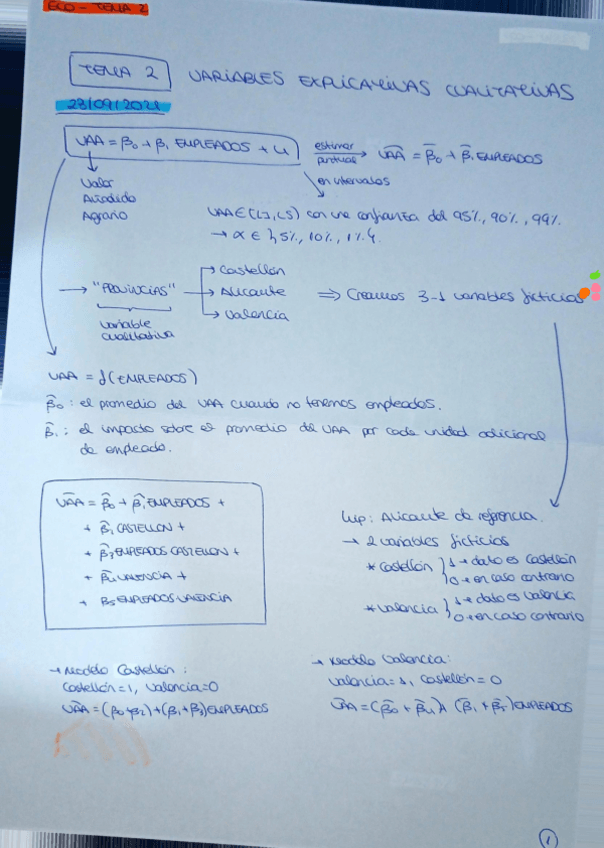 ECO - TEMA 2
TEMA 2 VARIABLES EXPLICATIVAS CUALITATIVAS
28/09/2021
VAA = β₀ + β₁ EMPLEADOS + u
estimar puntual → V̂AA = β̂₀ + β̂₁ EMPLEADOS
Valor
Añadido
Agrario
en intervalos
VAA ∈ (LI, LS) con una confianza del 95%, 90%, 99%.
→ α ∈ {5%, 10%, 1%}.
→ "PROVINCIAS"
variable
cualitativa
→ Castellón
→ Alicante
→ Valencia
⇒ Creamos 3-1 variables ficticias
VAA = f(EMPLEADOS)
β̂₀ : el promedio del VAA cuando no tenemos empleados.
β̂₁ : el impacto sobre el promedio del VAA por cada unidad adicional
de empleado.
V̂AA = β̂₀ + β̂₁ EMPLEADOS +
+ β̂₂ CASTELLON +
+ β̂₃ EMPLEADOS CASTELLON +
+ β̂₄ VALENCIA +
+ β₅ EMPLEADOS VALENCIA
Hip: Alicante de referencia.
→ 2 variables ficticias
* Castellón } 1 → dato es Castellón
0 → en caso contrario
* Valencia } 1 → dato es Valencia
0 → en caso contrario
→ Modelo Castellón :
Castellón = 1, Valencia = 0
V̂AA = (β₀+β₂) + (β₁+β₃) EMPLEADOS
→ Modelo Valencia:
Valencia = 1, Castellón = 0
V̂AA = (β̂₀ + β̂₄) + (β̂₁ + β̂₅) EMPLEADOS
1